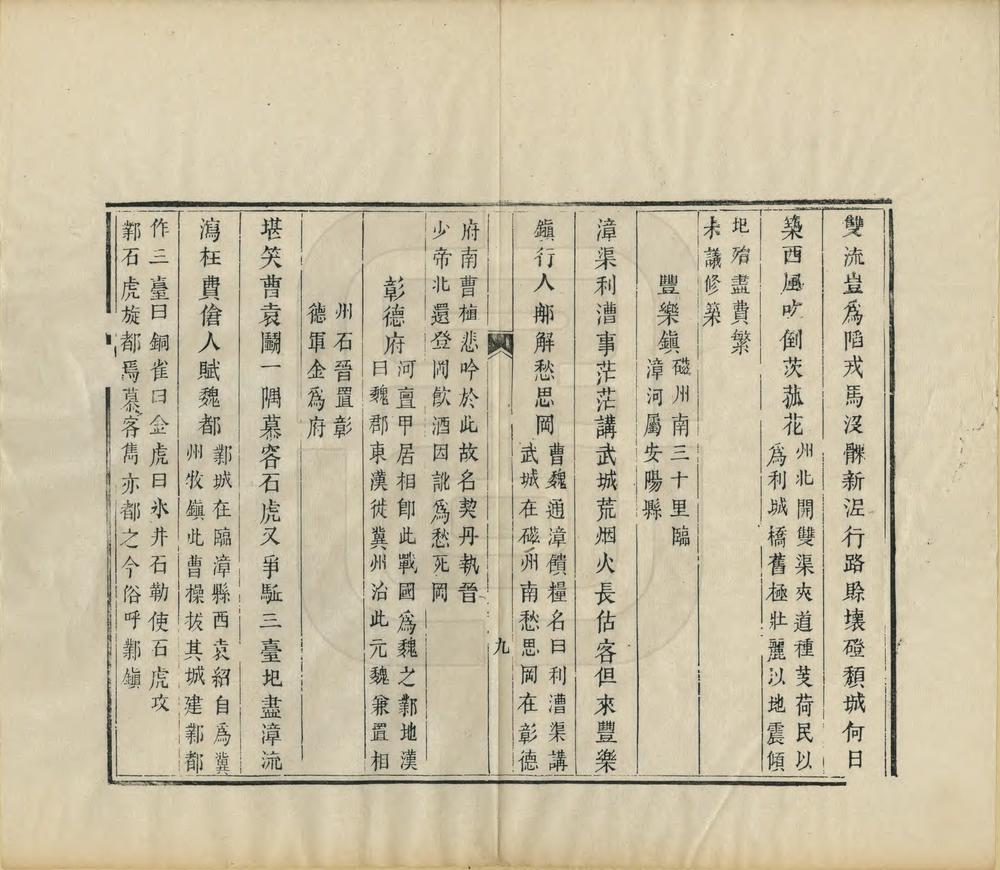 雙流豈爲陷戎馬沒髁新浞行路賒壞磴頽城何日
築西風吹倒茨菰花
州北開雙渠夾道種芰荷民以
爲利城橋舊極壯麗以地震傾
圯殆盡費繁
未議修築
豐樂鎮
磁州南三十里臨
漳河屬安陽縣
漳渠利漕事茫茫講武城荒烟火長估客但來豐樂
鎮行人那解愁思岡
曹魏通漳饋糧名曰利漕渠講
武城在磁州南愁思岡在彰德
府南曹植悲吟於此故名契丹執晉
少帝北還登閒飲酒因訛爲愁死岡
九
彰德府
河亶甲居相卽此戰國爲魏之鄴地漢
曰魏郡東漢徙冀州治此元魏兼置相
州石晉置彰
德軍金爲府
堪笑曹袁鬭一隅慕容石虎又爭駈三臺圯盡漳流
瀉枉費傖人賦魏都
鄴城在臨漳縣西袁紹自爲冀
州牧鎮此曹操拔其城建鄴都
作三臺曰銅雀曰金虎曰氷井石勒使石虎攻
鄴石虎旋都焉慕容雋亦都之今俗呼鄴鎮